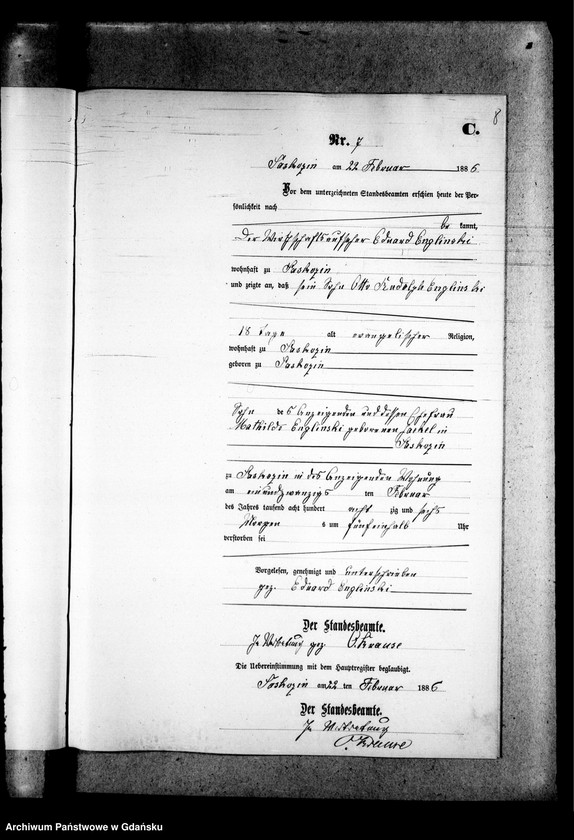 8
C.
Nr. 7
Saskozin am 22 Februar 1886.
Vor dem unterzeichneten Standesbeamten erschien heute der Per-
sönlichkeit nach
be kannt,
Der Wirthschaftsaufseher Eduard Englinski
wohnhaft zu Saskozin
und zeigte an, daß sein Sohn Otto Rudolph Englinski
18 Tage alt evangelischer Religion,
wohnhaft zu Saskozin
geboren zu Saskozin
Sohn des Anzeigenden und dessen Ehefrau
Mathilde Englinski geborenen Jaekel in
Saskozin
zu Saskozin in des Anzeigenden Wohnung
am einundzwanzigs ten Februar
des Jahres tausend acht hundert acht zig und sechs
Morgens um fünfeinhalb Uhr
verstorben sei
Vorgelesen, genehmigt und unterschrieben
gez. Eduard Englinski
Der Standesbeamte.
In Vertretung gez. O. Krause
Die Uebereinstimmung mit dem Hauptregister beglaubigt.
Saskozin am 22 ten Februar 1886
Der Standesbeamte.
In Vertretung
O. Krause
Archiwum Państwowe w Gdańsku